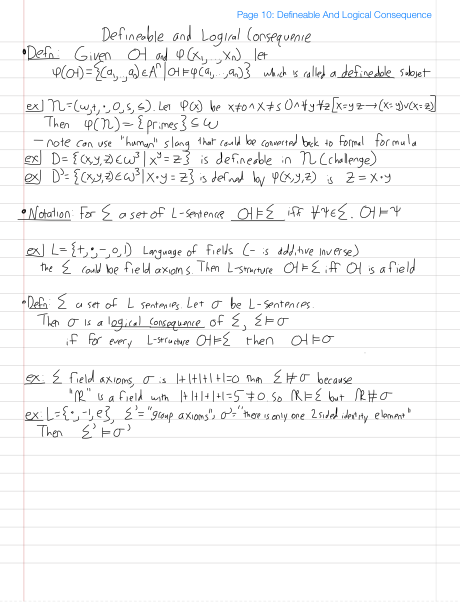 Page 10: Defineable And Logical Consequence
Defineable and Logical Consequence
• Defn: Given 𝔄 and φ(x₁,...,xₙ) let
φ(𝔄)={(a₁,...,aₙ)∈Aⁿ | 𝔄⊨φ(a₁,...,aₙ)} which is called a defineable subset
ex] 𝔑=(ω,+,·,0,s,≤). Let φ(x) be x≠0∧x≠s0∧∀y∀z[x=y·z→(x=y)∨(x=z)]
Then φ(𝔑)={primes}⊆ω
– note can use "human" slang that could be converted back to formal formula
ex] D={(x,y,z)∈ω³ | x^y=z} is defineable in 𝔑 (challenge)
ex] D³={(x,y,z)∈ω³ | x·y=z} is defined by φ(x,y,z) is z=x·y
• Notation: For Σ a set of L-sentence 𝔄⊨Σ iff ∀ψ∈Σ. 𝔄⊨ψ
ex] L={+,·,-,0,1} Language of fields (- is additive inverse)
the Σ could be field axioms. Then L-structure 𝔄⊨Σ iff 𝔄 is a field
• Defn: Σ a set of L sentences. Let σ be L-sentences.
Then σ is a logical consequence of Σ, Σ⊨σ
if for every L-structure 𝔄⊨Σ then 𝔄⊨σ
ex: Σ field axioms, σ is 1+1+1+1+1=0 then Σ⊭σ because
"ℝ" is a field with 1+1+1+1+1=5≠0. So ℝ⊨Σ but ℝ⊭σ
ex: L={·,-1,e}, Σ'="group axioms", σ'="there is only one 2 sided identity element"
Then Σ'⊨σ'